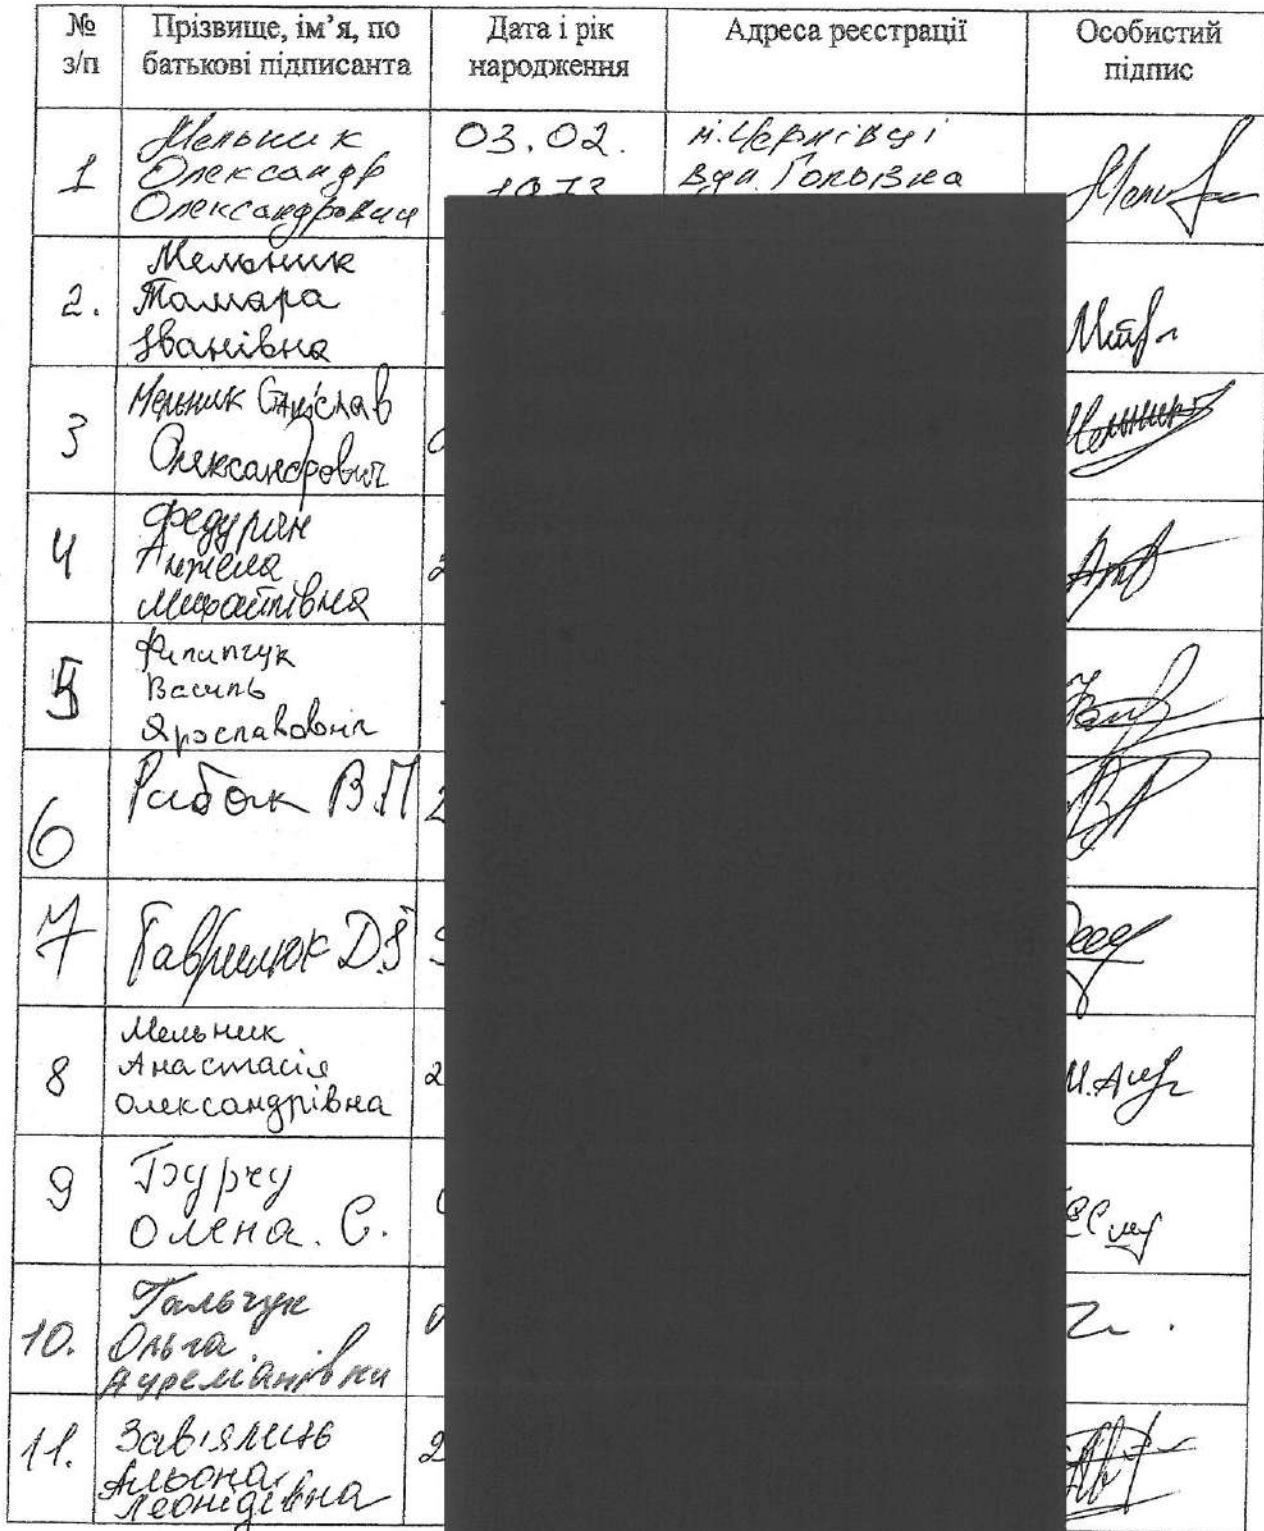 № з/п Прізвище, ім’я, по батькові підписанта Дата і рік народження Адреса реєстрації Особистий підпис
1 Мельник Олександр Олександрович 03.02. м. Чернівці вул. Головна
2. Мельник Тамара Іванівна
3 Мельник Станіслав Олександрович
4 Федурян Анжела Михайлівна
5 Филипчук Василь Ярославович
6 Рибак В.П
7 Гаврилюк Д.І
8 Мельник Анастасія Олександрівна
9 Бурчу Олена. С.
10. Гальчук Ольга
11. Альона Леонідівна